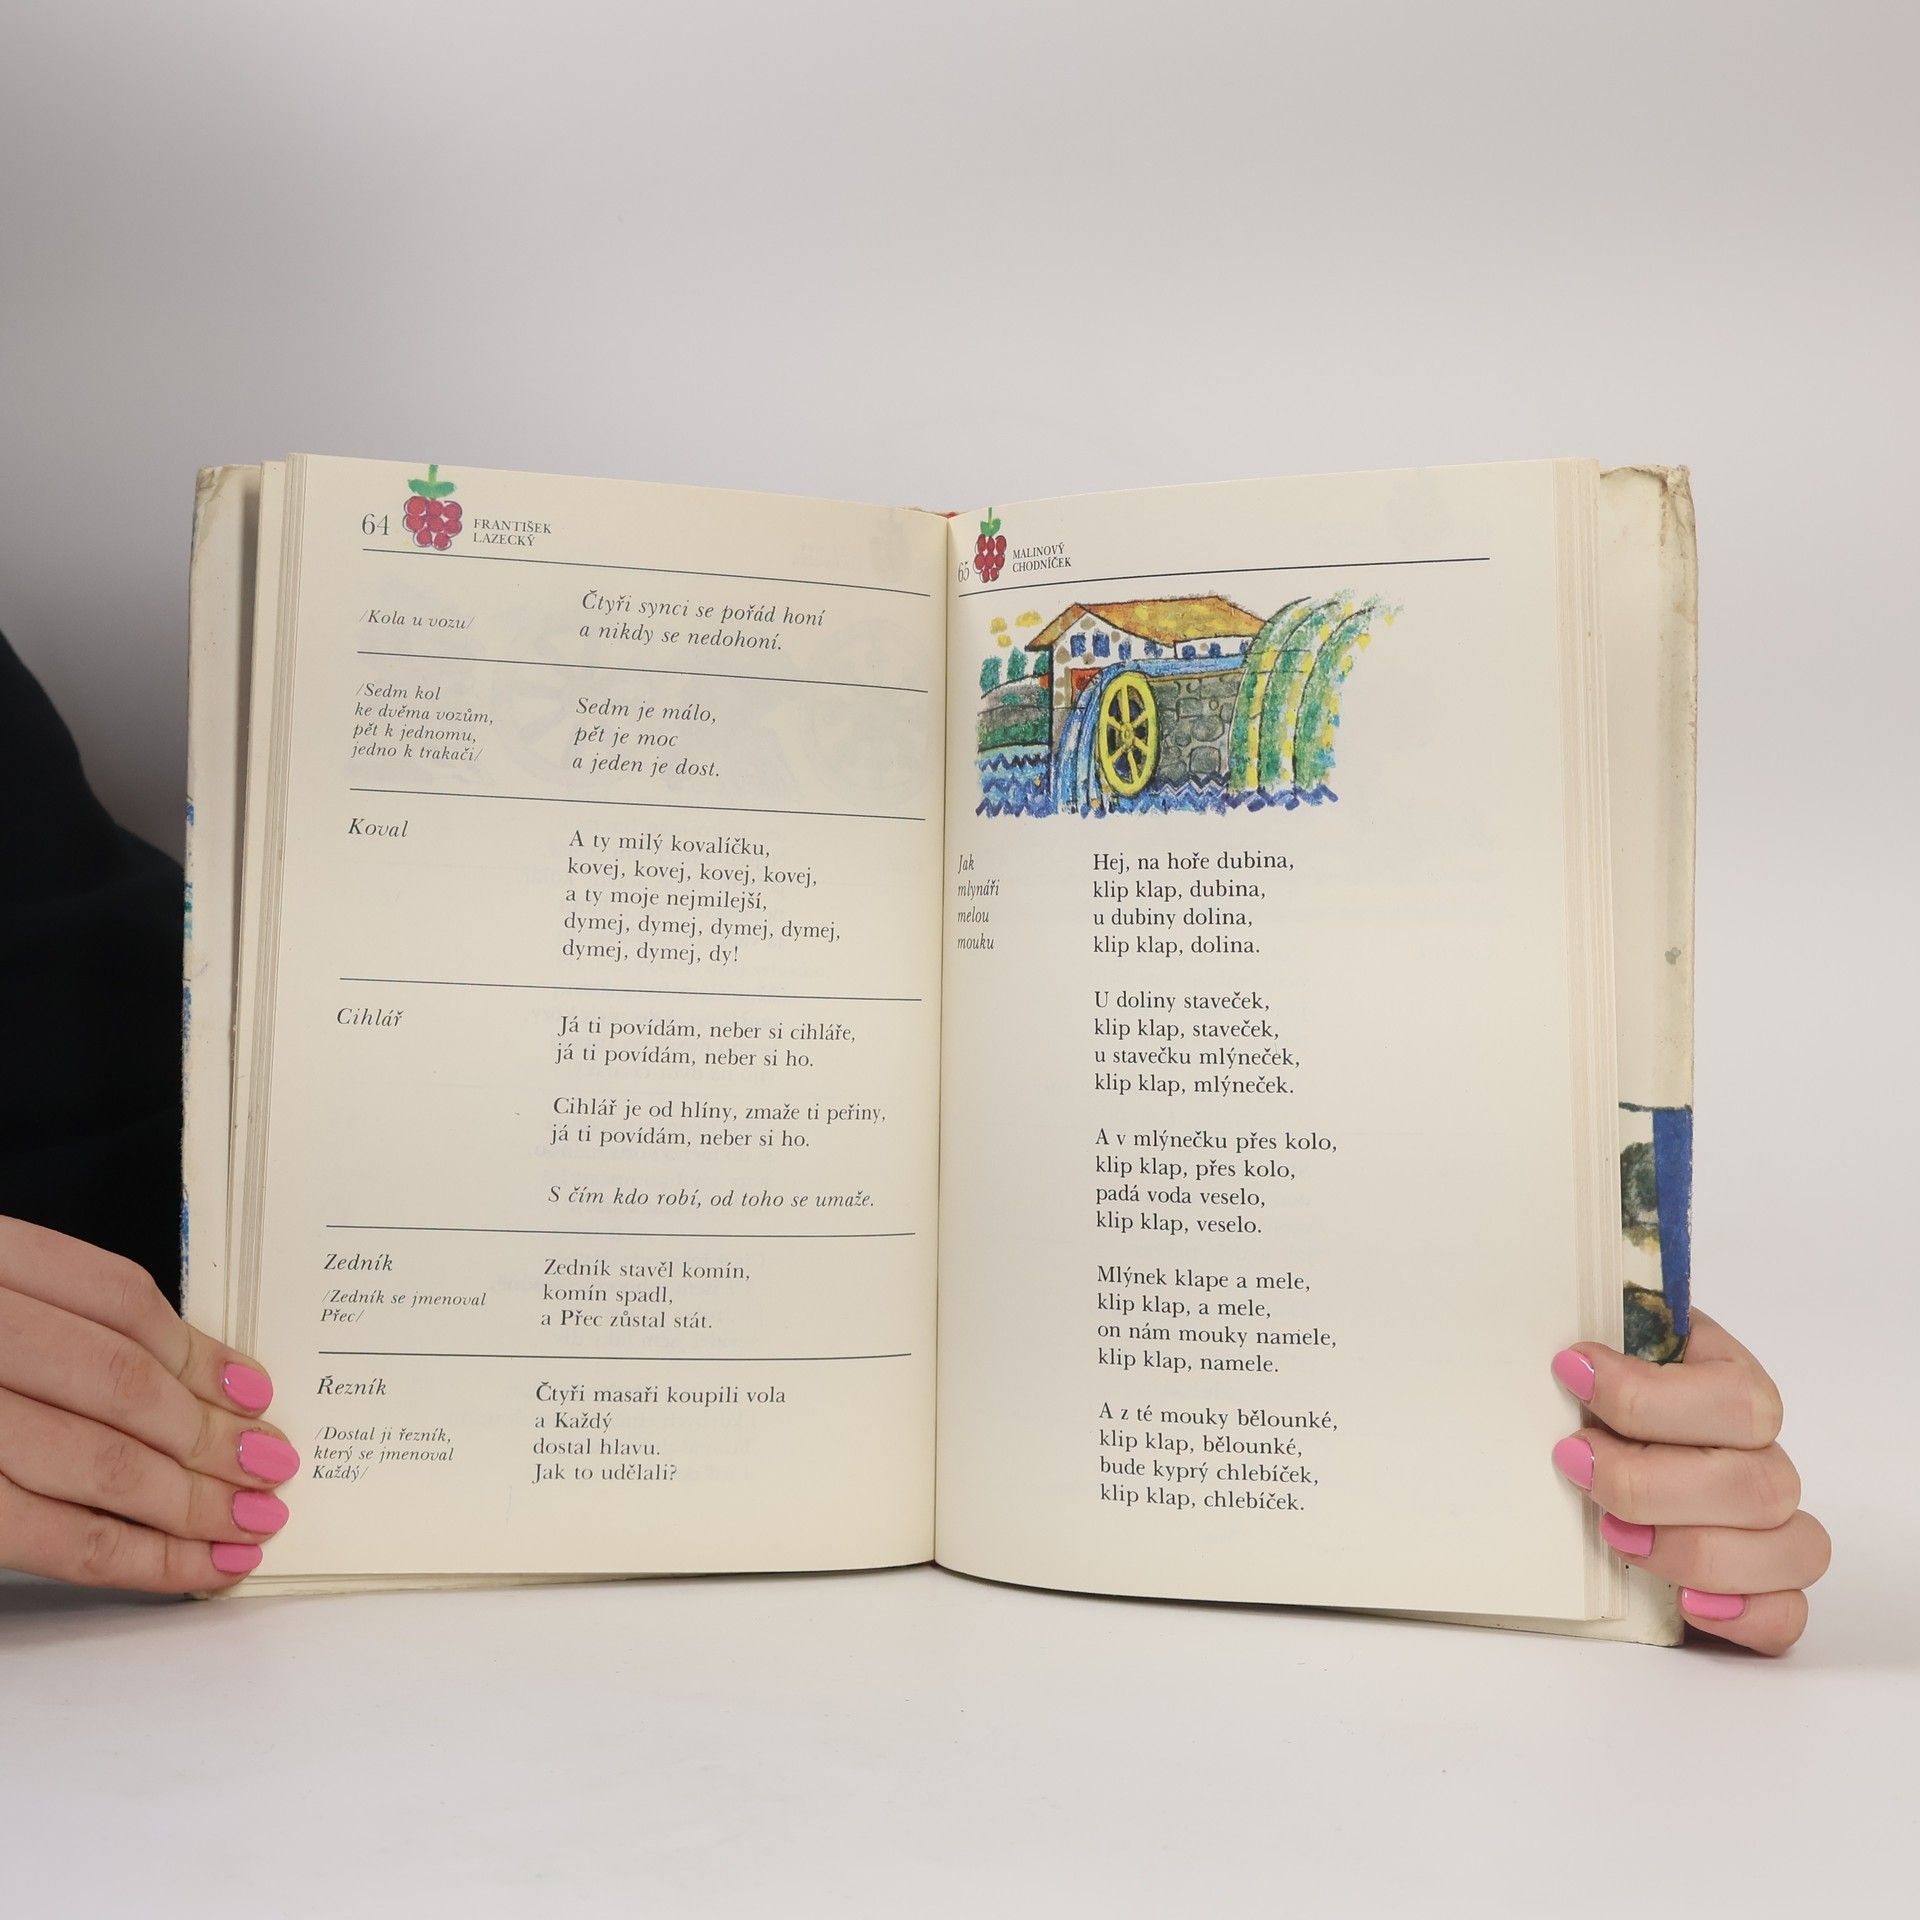 64
FRANTIŠEK
LAZECKÝ
/Kola u vozu/
Čtyři synci se pořád honí
a nikdy se nedohoní.
/Sedm kol
ke dvěma vozům,
pět k jednomu,
jedno k trakači/
Sedm je málo,
pět je moc
a jeden je dost.
Koval
A ty milý kovalíčku,
kovej, kovej, kovej, kovej,
a ty moje nejmilejší,
dymej, dymej, dymej, dymej,
dymej, dymej, dy!
Cihlář
Já ti povídám, neber si cihláře,
já ti povídám, neber si ho.
Cihlář je od hlíny, zmaže ti peřiny,
já ti povídám, neber si ho.
S čím kdo robí, od toho se umaže.
Zedník
/Zedník se jmenoval
Přec/
Zedník stavěl komín,
komín spadl,
a Přec zůstal stát.
Řezník
/Dostal ji řezník,
který se jmenoval
Každý/
Čtyři masaři koupili vola
a Každý
dostal hlavu.
Jak to udělali?
65
MALINOVÝ
CHODNÍČEK
Jak
mlynáři
melou
mouku
Hej, na hoře dubina,
klip klap, dubina,
u dubiny dolina,
klip klap, dolina.
U doliny staveček,
klip klap, staveček,
u stavečku mlýneček,
klip klap, mlýneček.
A v mlýnečku přes kolo,
klip klap, přes kolo,
padá voda veselo,
klip klap, veselo.
Mlýnek klape a mele,
klip klap, a mele,
on nám mouky namele,
klip klap, namele.
A z té mouky bělounké,
klip klap, bělounké,
bude kyprý chlebíček,
klip klap, chlebíček.